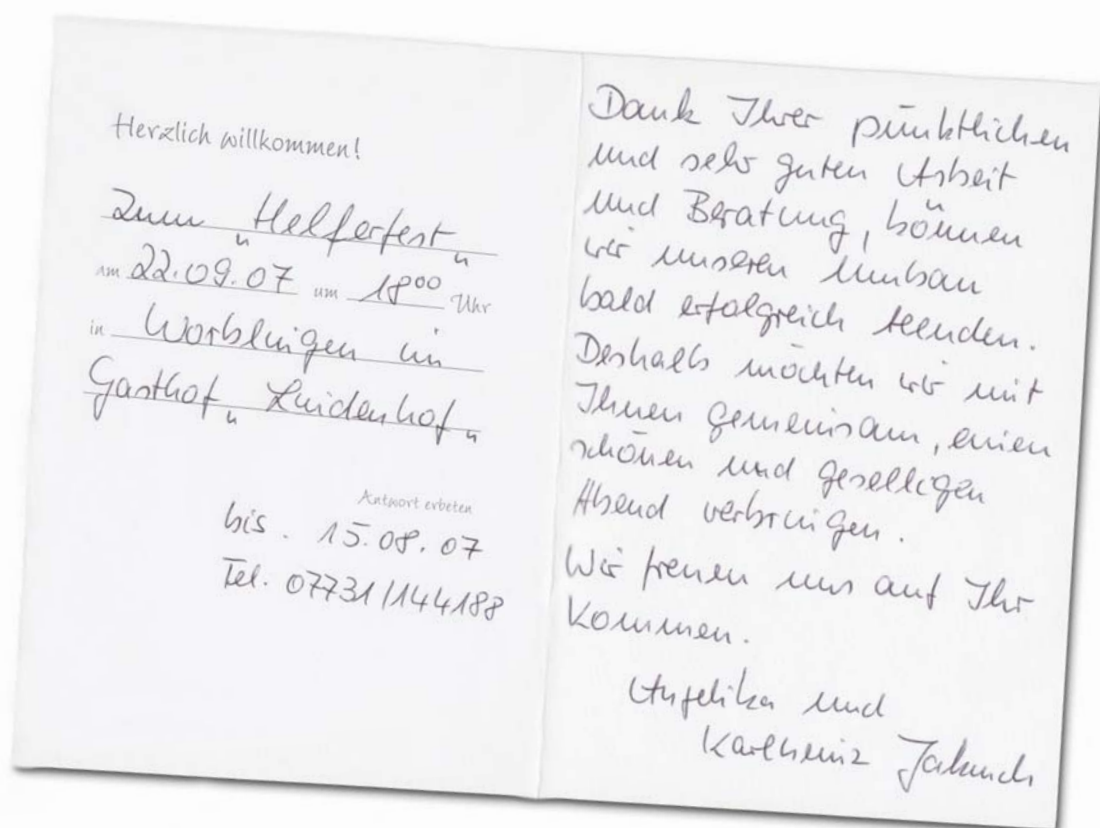 Herzlich willkommen!
Zum "Helferfest"
am 22.09.07 um 18⁰⁰ Uhr
in Worblingen im
Gasthof "Lindenhof"
Antwort erbeten
bis. 15.08.07
Tel. 07731/144188
Dank Ihrer pünktlichen
und sehr guten Arbeit
und Beratung, können
wir unseren Umbau
bald erfolgreich beenden.
Deshalb möchten wir mit
Ihnen gemeinsam, einen
schönen und geselligen
Abend verbringen.
Wir freuen uns auf Ihr
Kommen.
Angelika und
Karlheinz